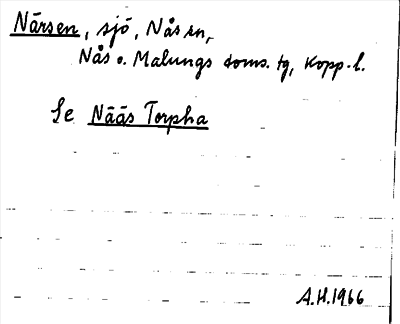 Närsen, sjö, Nås sn,
Nås o. Malungs doms. tg, Kopp. l.
Se Nääs Torpha
A.H.1966